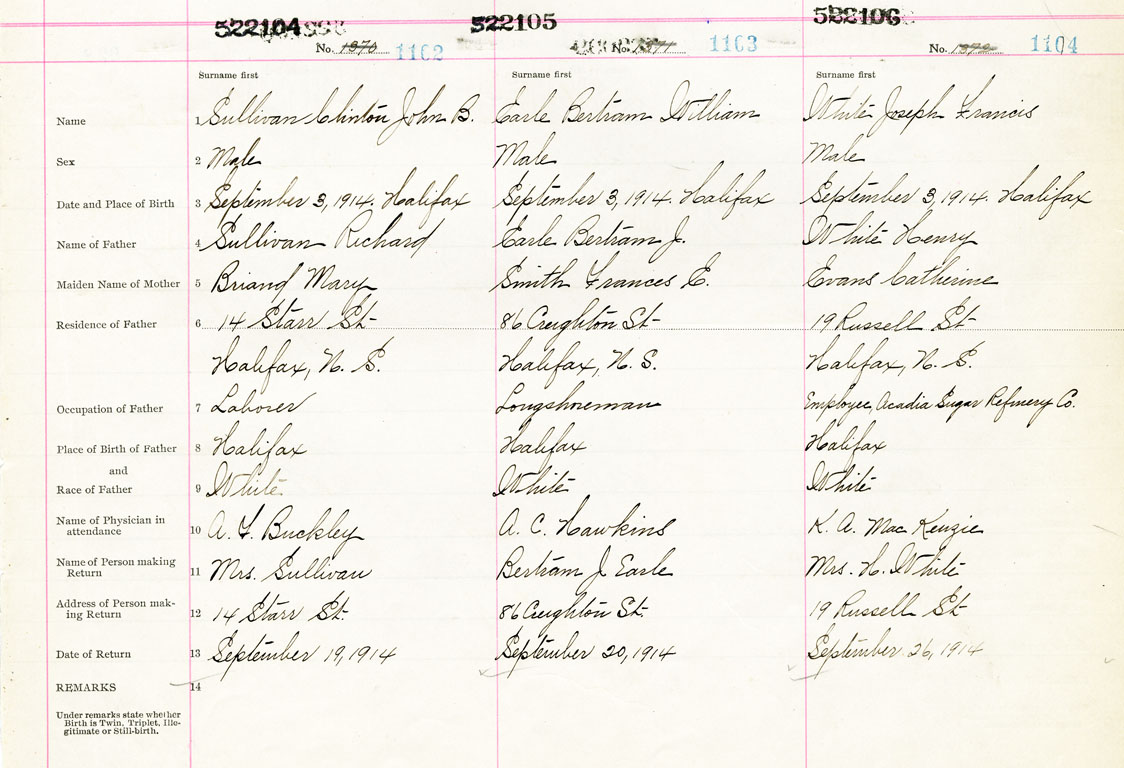 522104 522105 522106
No. 1970 1102 No. 1971 1103 No. 1972 1104
Surname first Surname first Surname first
Name 1 Sullivan Clinton John B. Earle Bertram William White Joseph Francis
Sex 2 Male Male Male
Date and Place of Birth 3 September 3, 1914. Halifax September 3, 1914. Halifax September 3, 1914. Halifax
Name of Father 4 Sullivan Richard Earle Bertram J. White Henry
Maiden Name of Mother 5 Briand Mary Smith Frances E. Evans Catherine
Residence of Father 6 14 Starr St 86 Creighton St 19 Russell St
Halifax, N. S. Halifax, N. S. Halifax, N. S.
Occupation of Father 7 Laborer Longshoreman Employee, Acadia Sugar Refinery Co.
Place of Birth of Father 8 Halifax Halifax Halifax
and
Race of Father 9 White White White
Name of Physician in
attendance 10 A. F. Buckley A. C. Hawkins K. A. MacKenzie
Name of Person making
Return 11 Mrs. Sullivan Bertram J Earle Mrs. H. White
Address of Person mak-
ing Return 12 14 Starr St. 86 Creighton St. 19 Russell St
Date of Return 13 September 19, 1914 September 20, 1914 September 26, 1914
REMARKS 14
Under remarks state whether
Birth is Twin, Triplet, Ille-
gitimate or Still-birth.